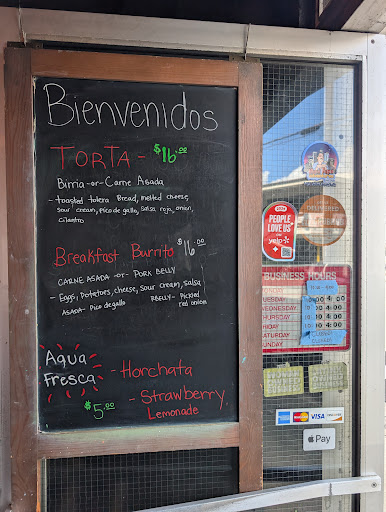 Bienvenidos
TORTA - $16.00
Birria -or- Carne Asada
- toasted telera Bread, melted cheese,
sour cream, Pico de gallo, salsa roja, onion,
cilantro
Breakfast Burrito $16.00
CARNE ASADA -or- PORK BELLY
- Eggs, Potatoes, cheese, sour cream, salsa
ASADA- Pico de gallo
PBELLY- Pickled
red onion
Agua
Fresca
$5.00
- Horchata
- Strawberry
Lemonade
PEOPLE
LOVE US
yelp
BUSINESS HOURS
TUESDAY
WEDNESDAY
THURSDAY
FRIDAY
SATURDAY
SUNDAY
VISA
Pay